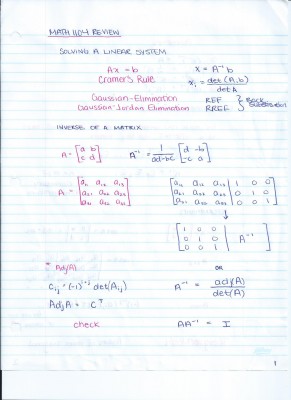 MATH 1104 REVIEW
SOLVING A LINEAR SYSTEM
Ax = b x = A⁻¹b
Cramer's Rule xᵢ = det(Aᵢb) / det A
Gaussian-Elimination REF } Back
Gaussian-Jordan Elimination RREF } Substitution
INVERSE OF A MATRIX
A = [a b; c d] A⁻¹ = 1/(ad-bc) [d -b; -c a]
A = [a₁₁ a₁₂ a₁₃; a₂₁ a₂₂ a₂₃; a₃₁ a₃₂ a₃₃] [a₁₁ a₁₂ a₁₃ | 1 0 0; a₂₁ a₂₂ a₂₃ | 0 1 0; a₃₁ a₃₂ a₃₃ | 0 0 1]
↓
[1 0 0; 0 1 0; 0 0 1 | A⁻¹]
* Adj(A) OR
Cᵢⱼ = (-1)ⁱ⁺ʲ det(Aᵢⱼ) A⁻¹ = adj(A) / det(A)
Adj A = Cᵀ
check AA⁻¹ = I
1